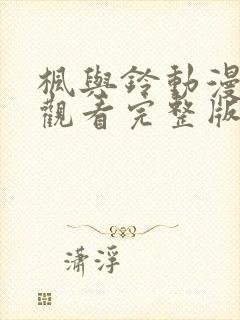 楓與鈴動漫
觀看完整版
瀟浮